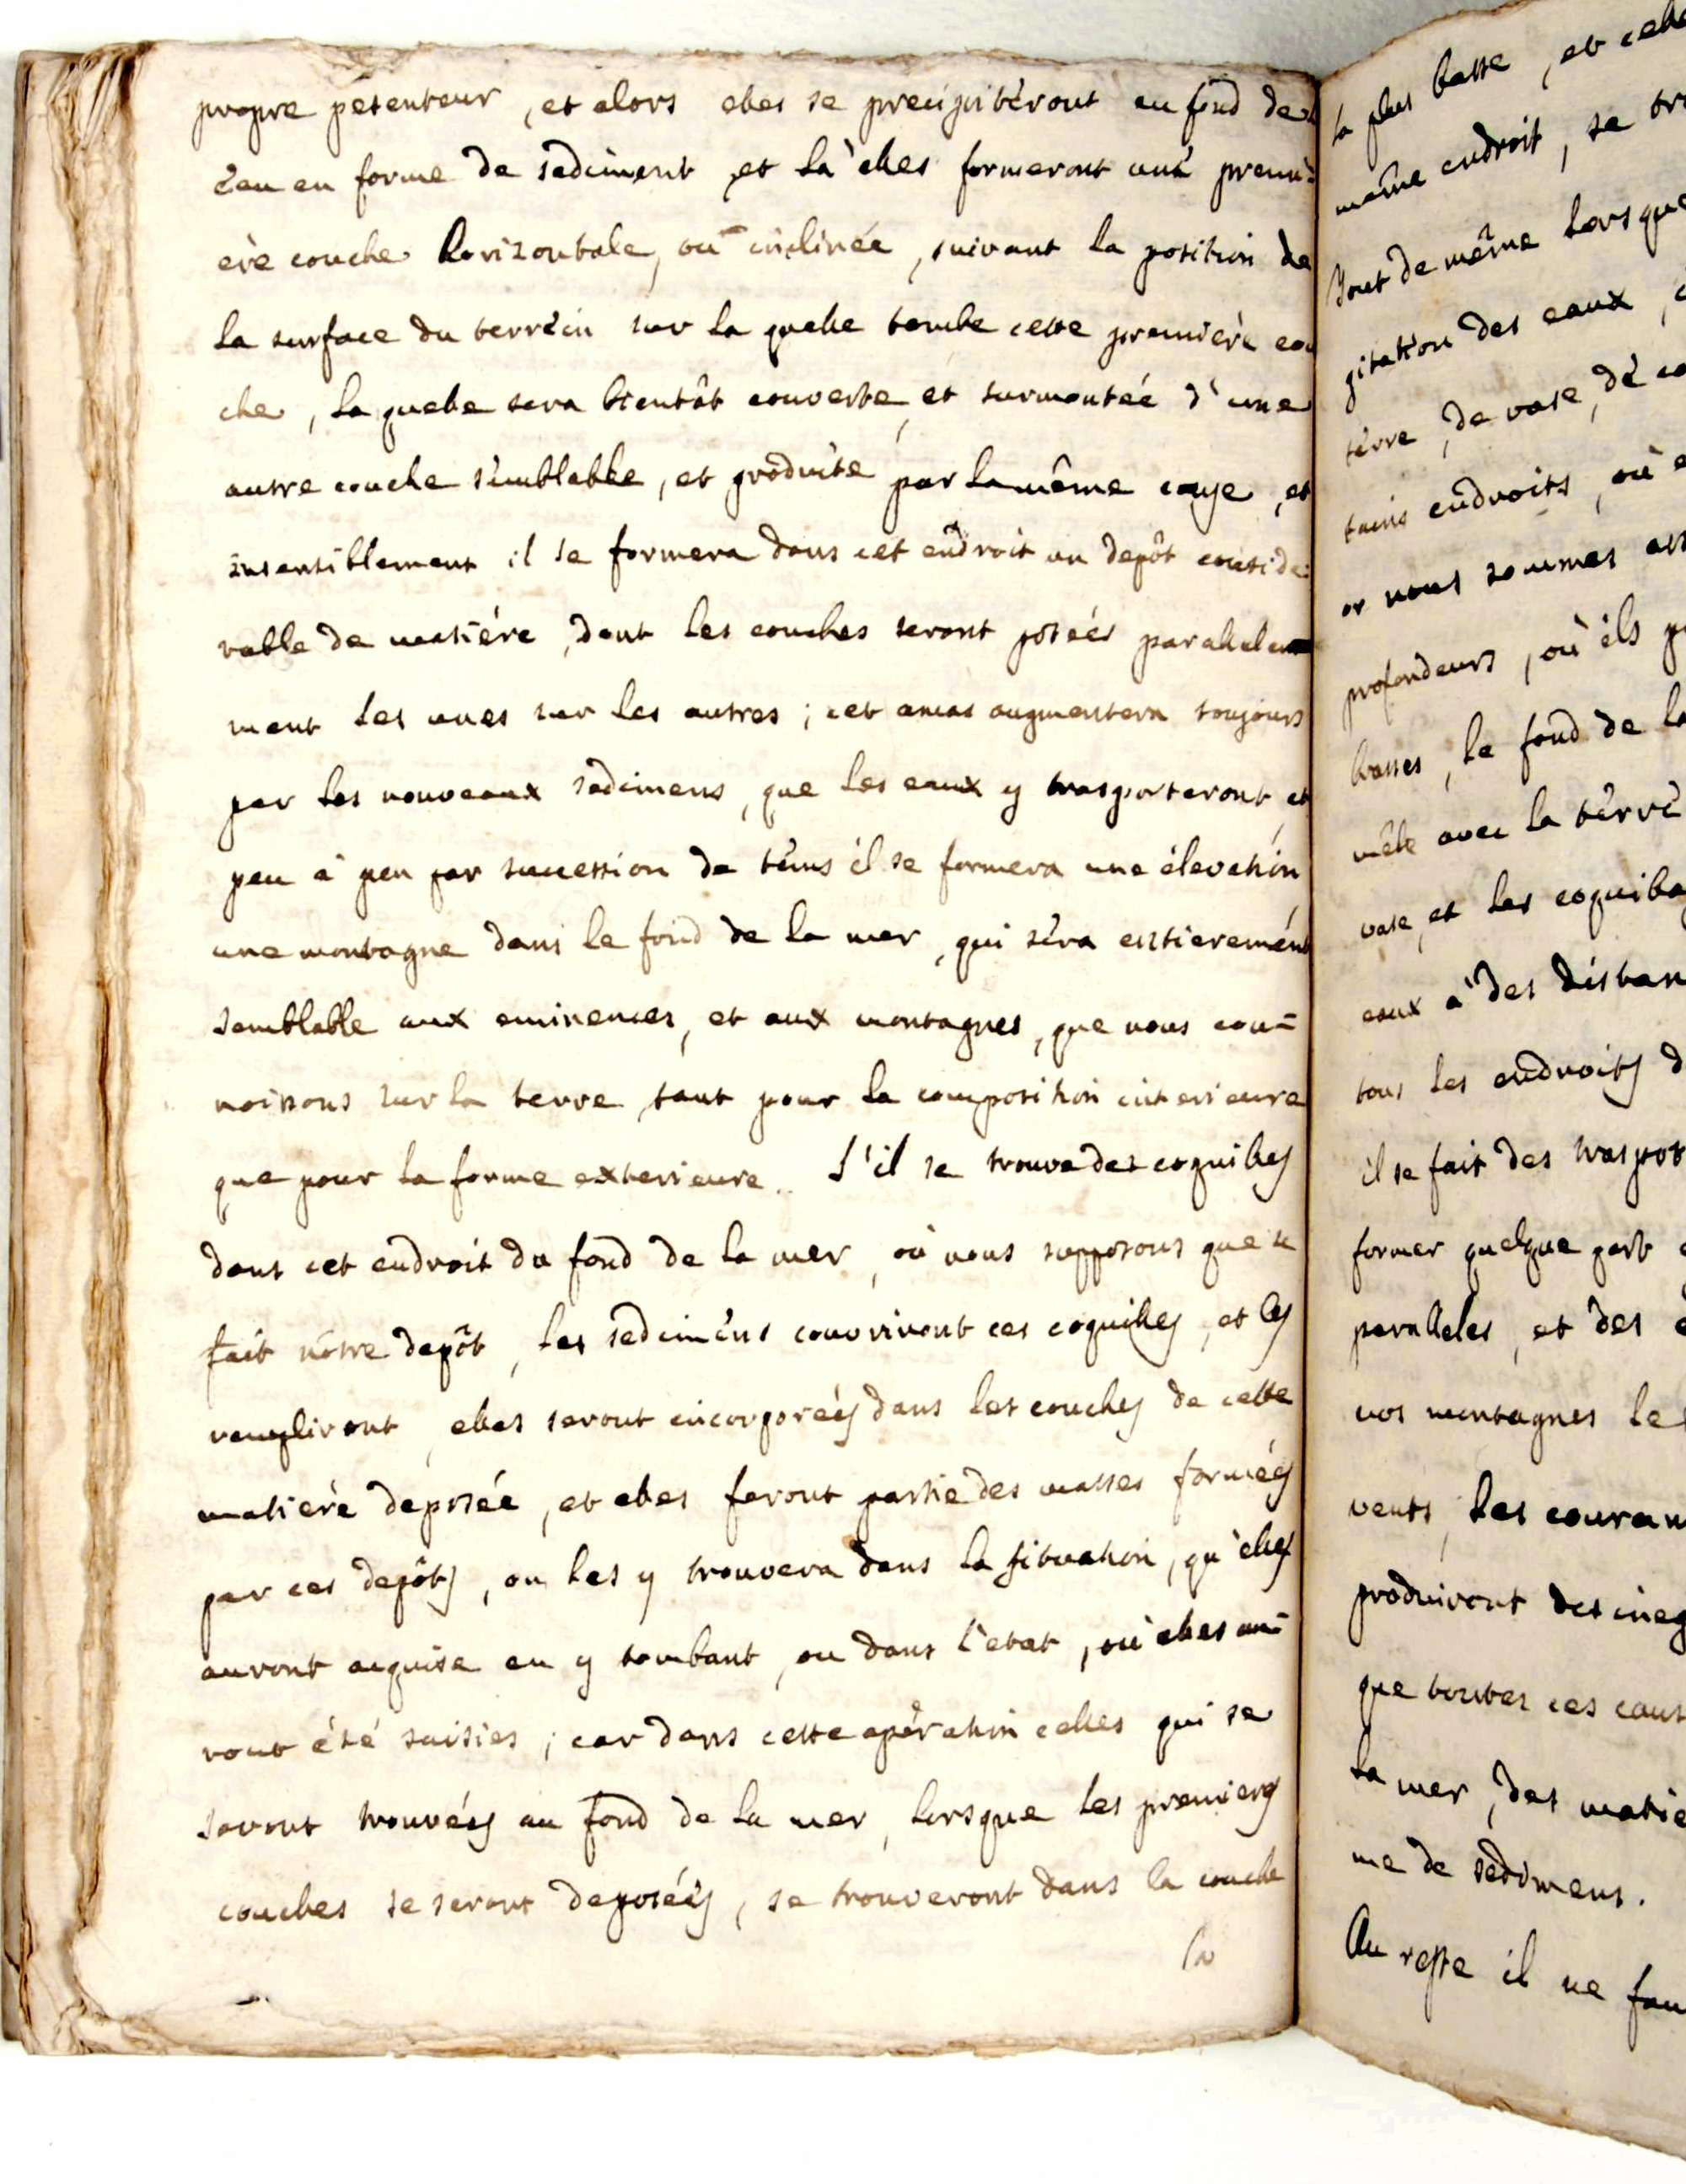 propre pesenteur, et alors elles se precipitèront au fond de l
èau en forme de sediment, et là elles formeront unè premi=
ère couche horizontale, ou inclinée, suivant la position de
la surface du terrèin sur la quelle tombe cette premièrè cou
che, la quelle sera bientôt couverte, et surmontéé d'une
autre couche sèmblable, et produite par la même cause, et
insensiblement il se formera dans cet endroit un depôt conside=
rable de matiére, dont les couches seront poséés parallelem
ment les unes sur les autres; cet amas augmentera toujours
par les nouveaux sedimens, que les eaux y trasporteront, et
peu à peu par succession de tèms il se formera une élevation,
une montagne dans le fond de la mer, qui sèra entierement
semblable aux eminences, et aux montagnes, que nous con=
noissons sur la terre, tant pour la composition interieure
que pour la forme exterieure. S'il se trouve des coquilles
dans cet endroit du fond de la mer, où nous supposons que se
fait nôtre depôt, les sedimèns couvriront ces coquilles, et les
rempliront, elles seront incorporées dans les couches de cette
matière deposée, et elles feront partie des masses formées
par ces depôts, on les y trouvera dans la situation, qu'elles
auront acquise en y tombant, ou dans l'etat, où elles au=
ront été saisies; car dans cette opèration celles qui se
seront trouvées au fond de la mer, lorsque les premiers
couches se seront deposées, se trouveront dans la couche
la
la plus basse, et celle
même endroit, se tro
Tout de même lorsque
gitation des eaux,
tèrre, de vase, de co
tains endroits, où
or nous sommes ass
profondeurs, où ils p
basses, le fond de la
mêle avec la tèrrè
vase, et les coquilla
eaux à des distan
tous les endroits d
il se fait des traspor
former quelque part
paralleles, et des
nos montagnes le
vents, les couran
produiront des ineg
que toutes ces caus
la mer, des matie
me de sedimens.
Au reste il ne fau